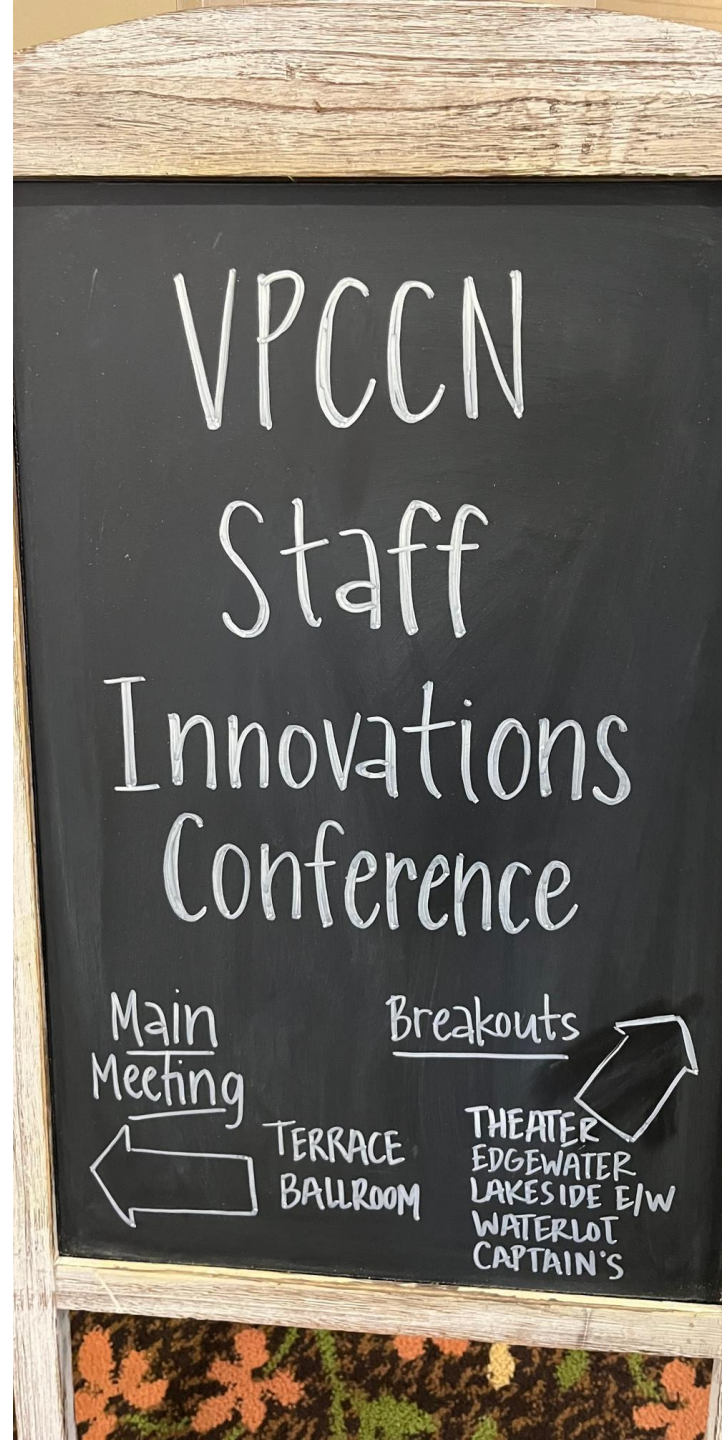 VPCCN
Staff
Innovations
Conference
Main
Meeting
TERRACE
BALLROOM
Breakouts
THEATER
EDGEWATER
LAKESIDE E/W
WATERLOT
CAPTAIN'S